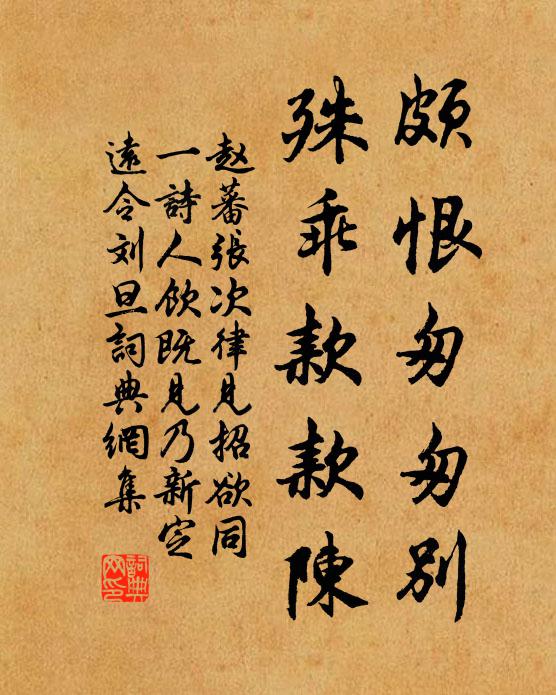 頗恨匆匆别
殊乖款款陳
赵蕃張次律見招欲同
一詩人飲既見乃新定
遠令刘旦詞典網集
詞典网印